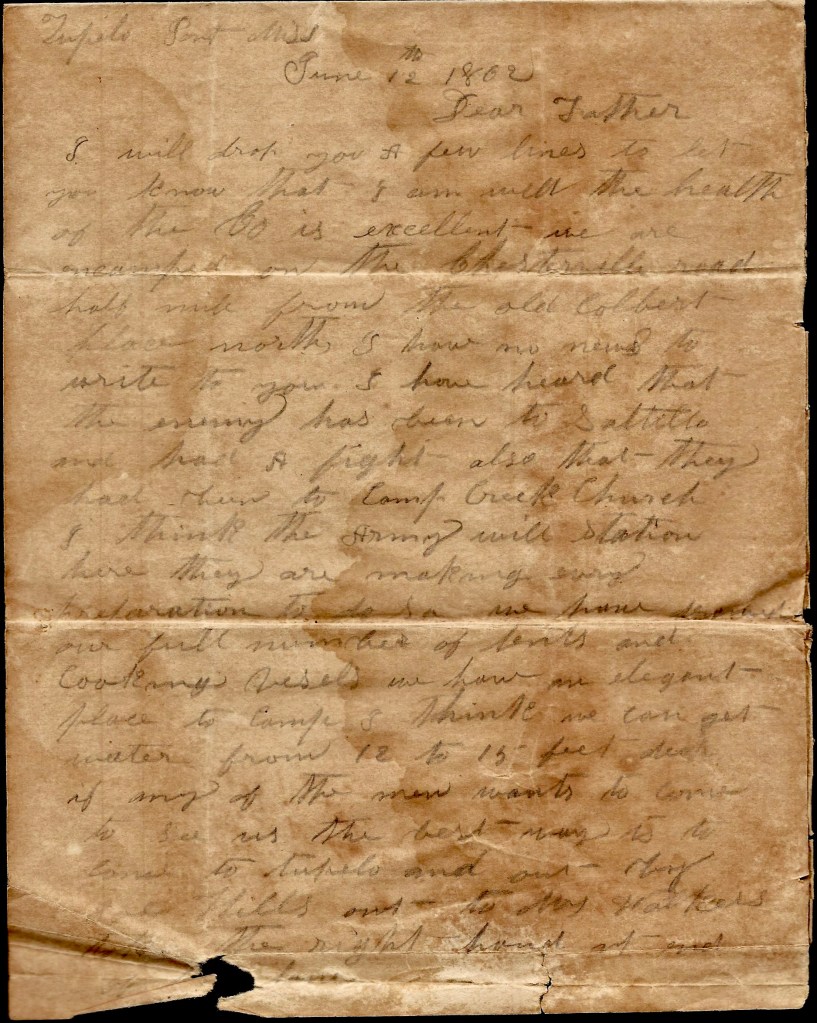 Tupelo Miss
June 12th 1862
Dear Father
I will drop you A few lines to let
you know that I am well the health
of the Co is excellent we are
encamped on the Chesterville road
half mile from the old Colbert
place north I have no news to
write to you I have heard that
the enemy has been to Saltillo
and had A fight also that they
had been to Camp Creek Church
I think the Army will station
here they are making every
preparation to do so we have
our full number of tents and
Cooking Vesels we have an elegant
place to Camp I think we can get
water from 12 to 15 feet deep
if any of the men wants to come
to see us the best way is to
come to tupelo and out by
Mills out to Mrs
the right hand at end
lane